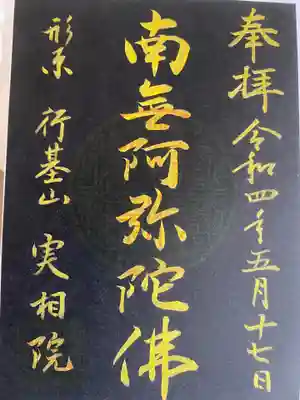 奉拝 令和四年五月十七日
南無阿弥陀佛
形原 行基山 実相院